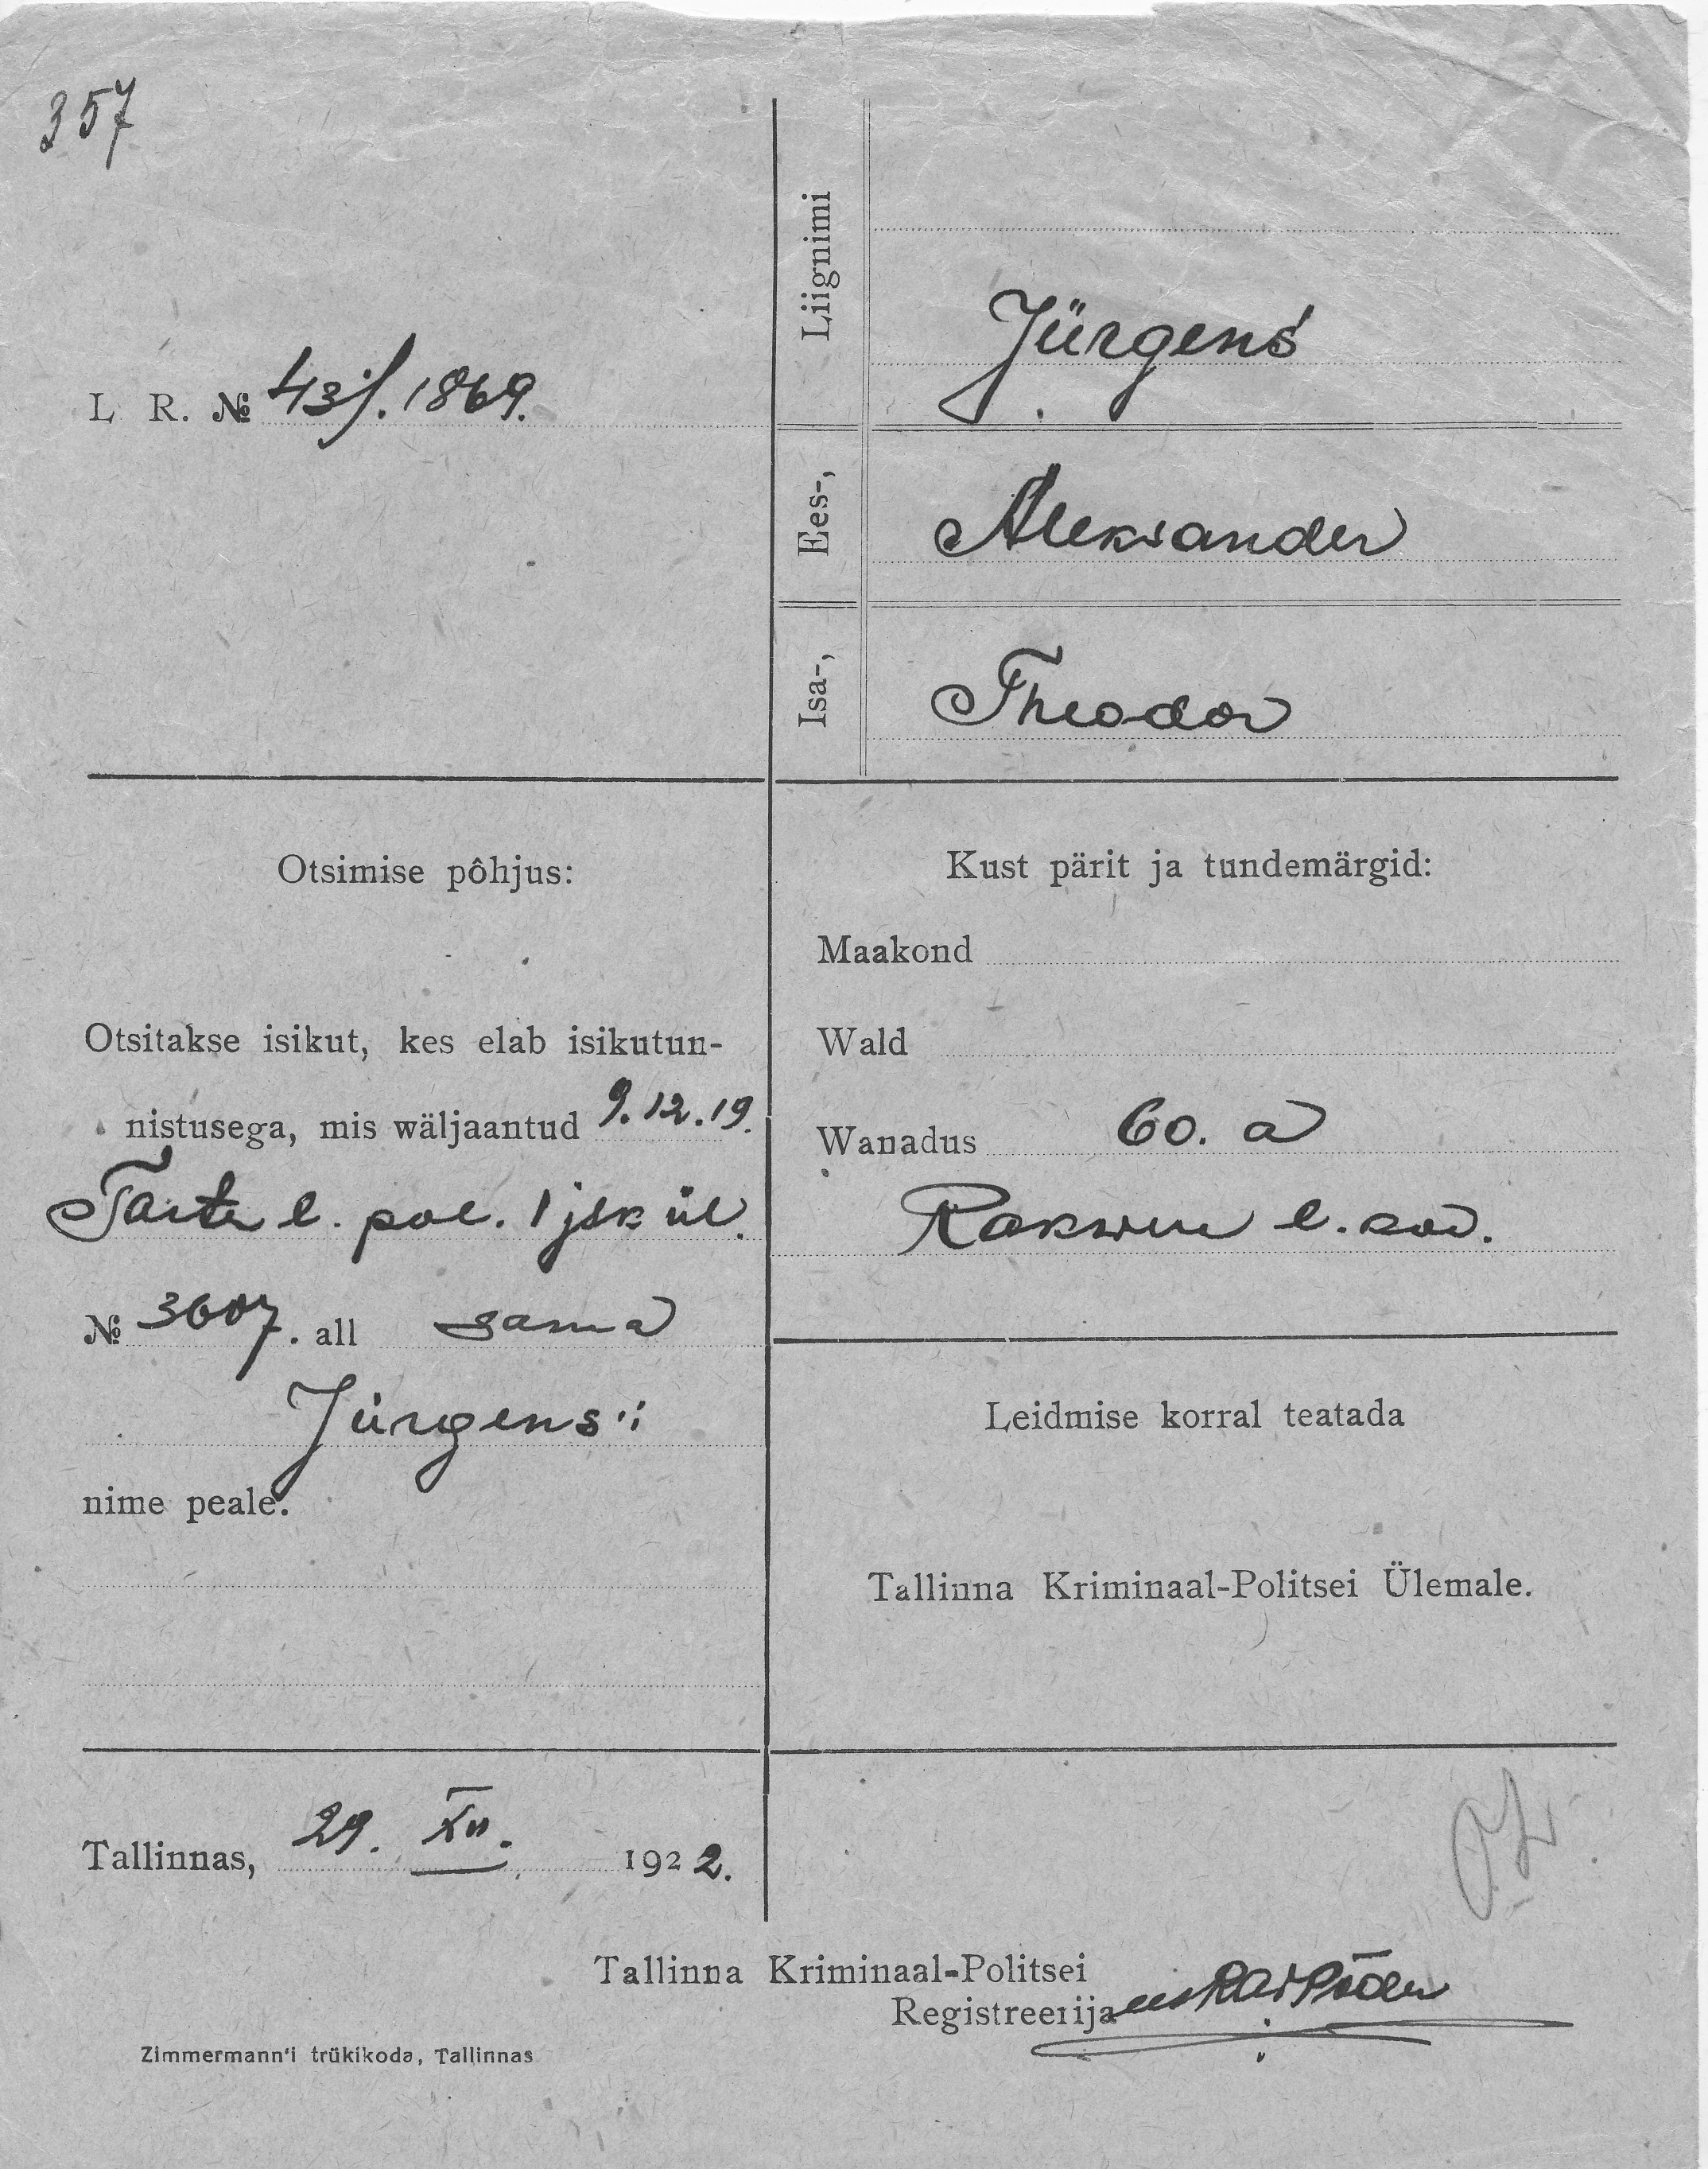 357
L R. № 43j. 1869.
Liignimi
Jürgens
Ees-,
Aleksander
Isa-,
Theodor
Otsimise põhjus:
Otsitakse isikut, kes elab isikutun-
nistusega, mis wäljaantud 9.12.19.
Tartu l. pol. 1 jsk ül.
№ 3607. all sama
Jürgens'i
nime peale.
Kust pärit ja tundemärgid:
Maakond
Wald
Wanadus 60. a
Rakwere l. kod.
Leidmise korral teatada
Tallinna Kriminaal-Politsei Ülemale.
Tallinnas, 29. XII. 1922.
Tallinna Kriminaal-Politsei
Registreerija
Zimmermann'i trükikoda, Tallinnas